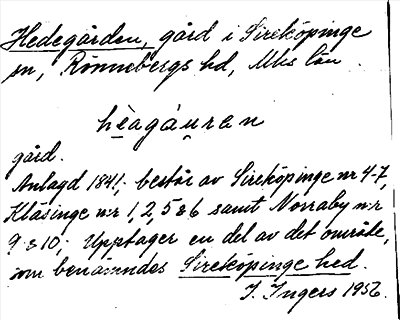 Hedegården, gård i Sireköpinge
sn, Rönnebergs hd, Mhs län.
hèagáuran
gård.
Anlagd 1841; består av Sireköpinge nr 4-7,
Klåsinge nr 1, 2, 5 & 6 samt Norraby nr
9 & 10; Upptager en del av det område,
som benämndes Sireköpinge hed.
I. Ingers 1956.